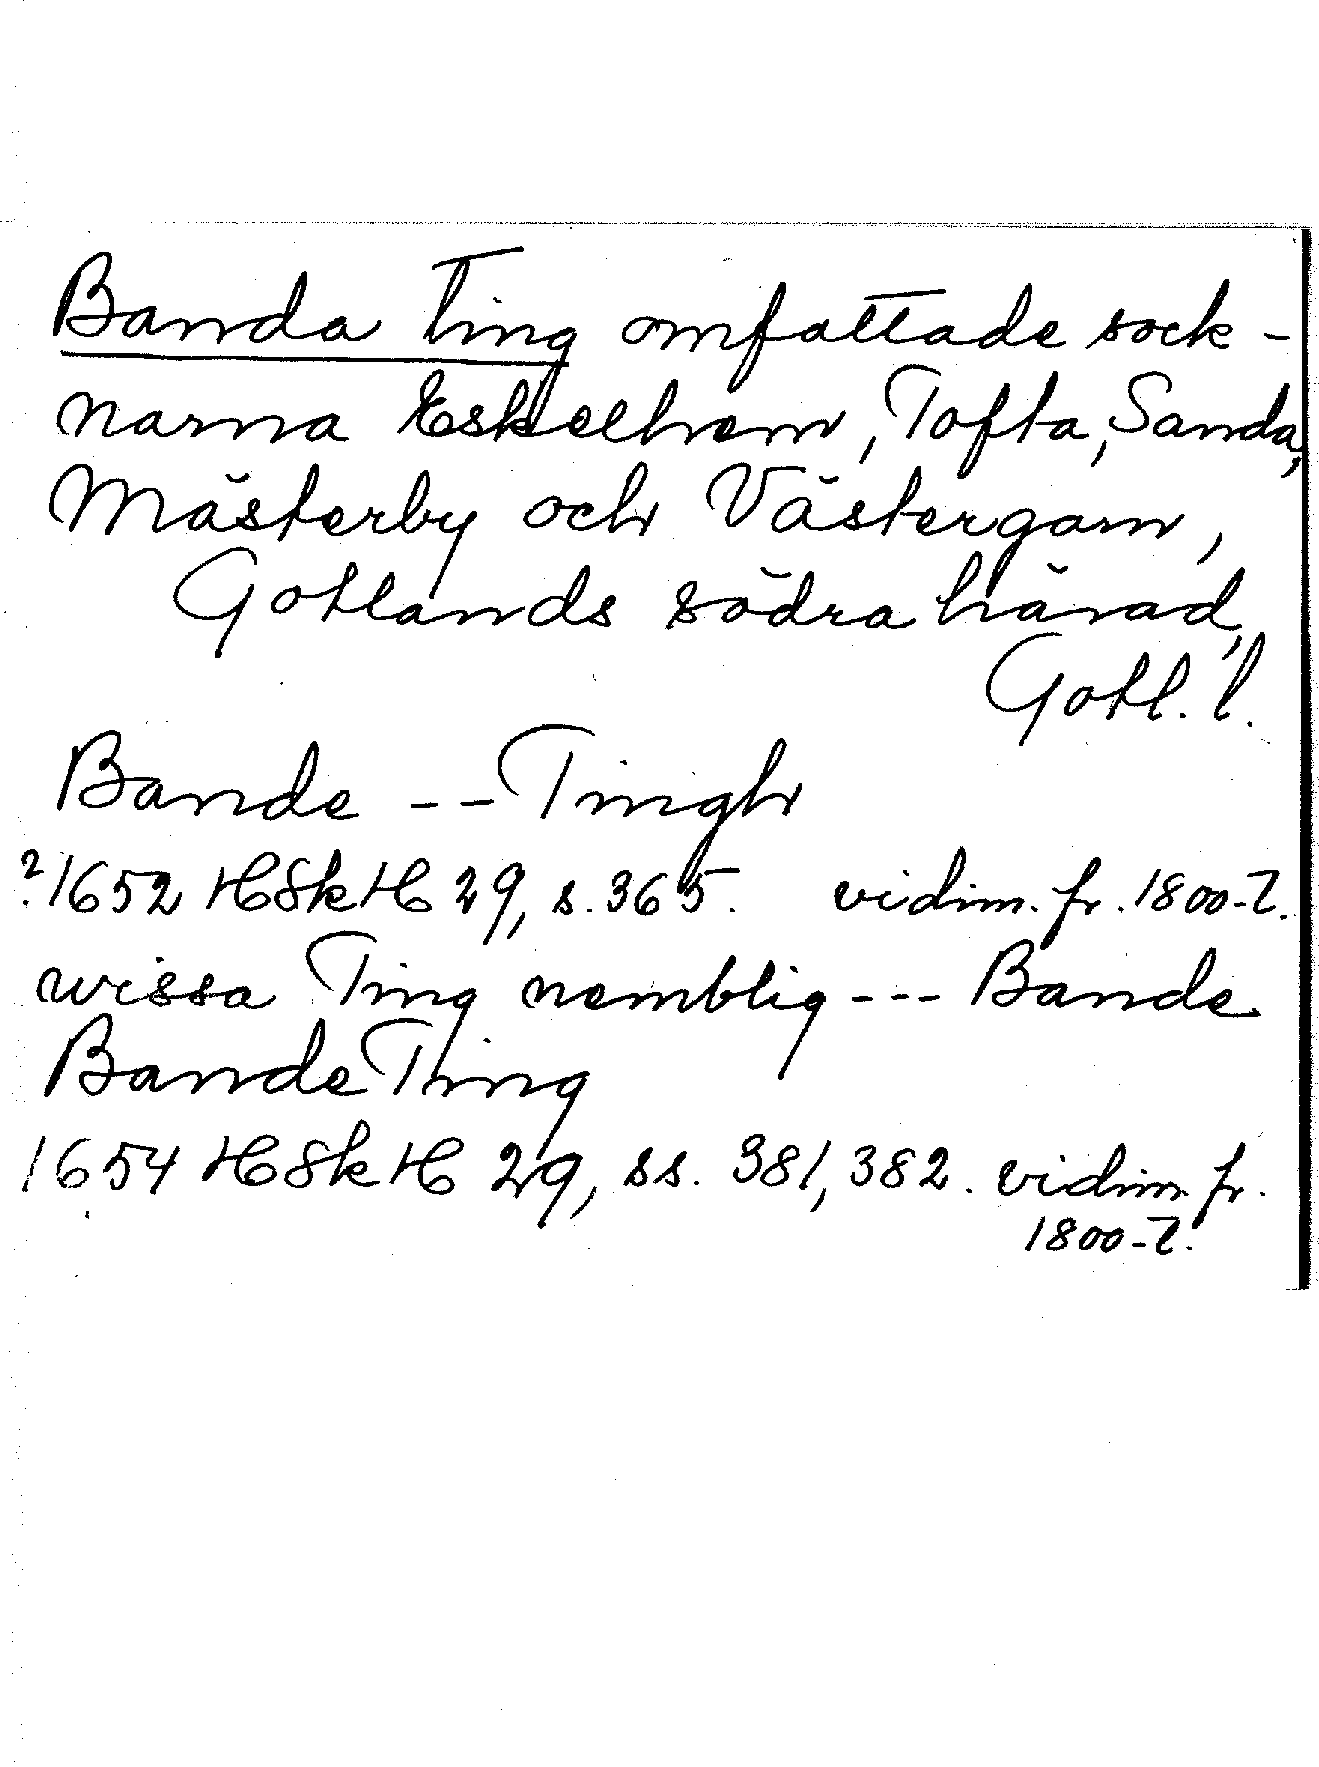 Banda ting omfattade sock-
narna Eskelhem, Tofta, Sanda,
Mästerby och Västergarn,
Gotlands södra härad,
Gotl. l.
Bande -- Tingh
? 1652 HSkH 29, s. 365. vidim. fr. 1800-t.
wissa Ting nemblig --- Bande
Bande Ting
1654 HSkH 29, ss. 381, 382. vidim. fr.
1800-t.